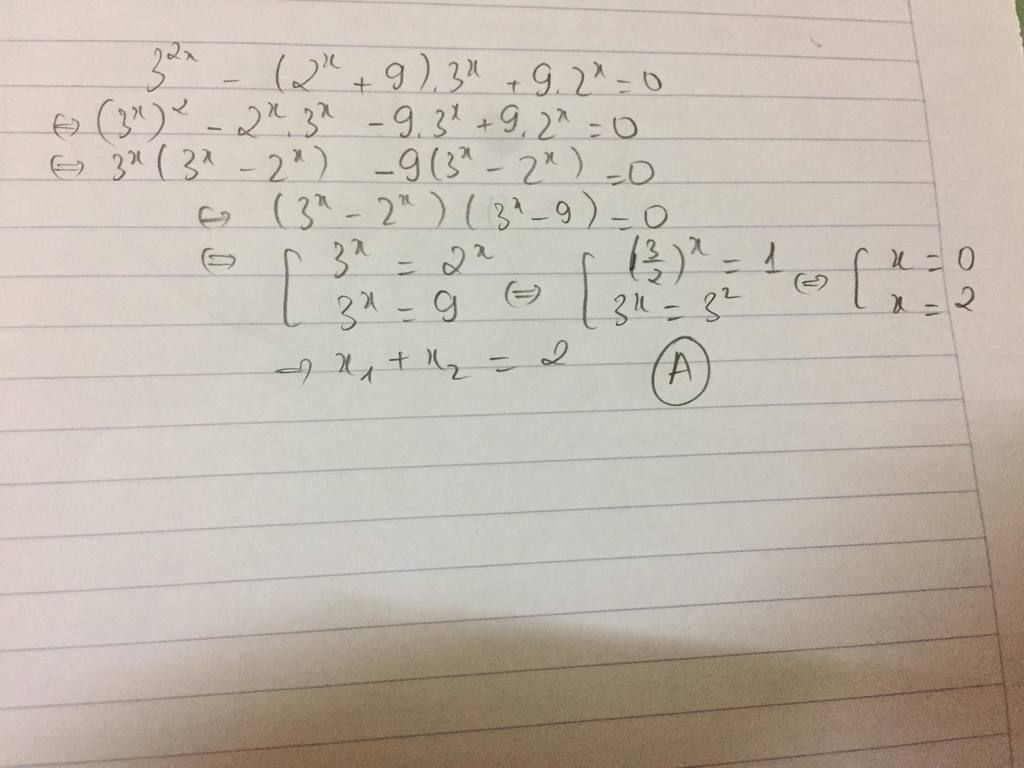 3^{2x} - (2^x + 9).3^x + 9.2^x = 0
⇔ (3^x)^2 - 2^x.3^x - 9.3^x + 9.2^x = 0
⇔ 3^x(3^x - 2^x) - 9(3^x - 2^x) = 0
⇔ (3^x - 2^x)(3^x - 9) = 0
⇔ [ 3^x = 2^x ; 3^x = 9 ⇔ [ (3/2)^x = 1 ; 3^x = 3^2 ⇔ [ x = 0 ; x = 2
→ x_1 + x_2 = 2 Ⓐ